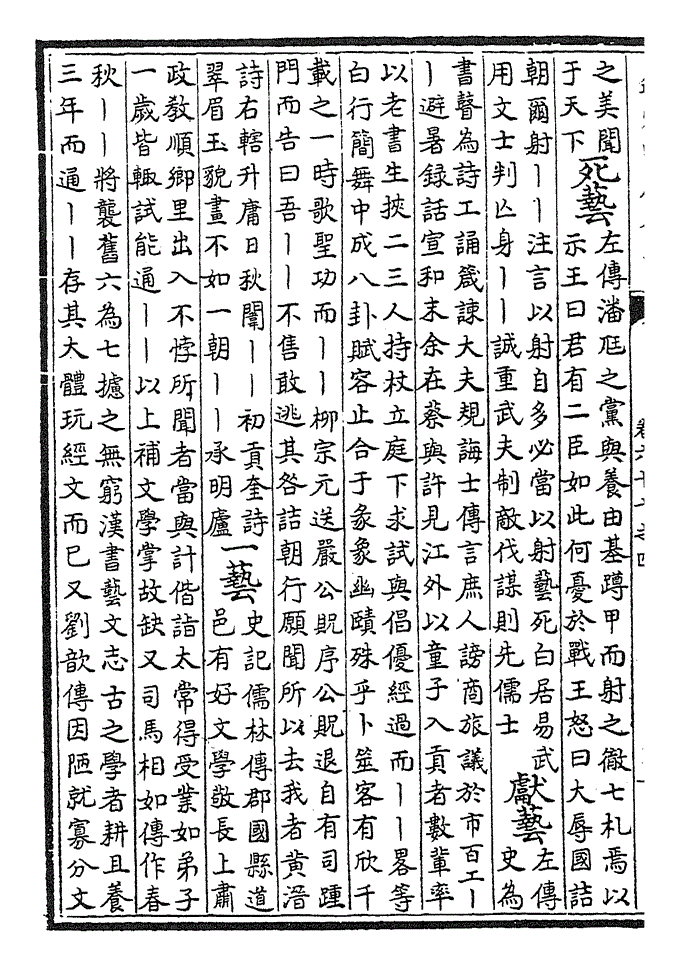 之美聞
于天下
死藝
左傳潘尫之黨與養由基蹲甲而射之徹七札焉以
示王曰君有二臣如此何憂於戰王怒曰大辱國詰
朝爾射丨丨注言以射自多必當以射藝死白居易武
用文士判亡身丨丨誠重武夫制敵伐謀則先儒士
獻藝
左傳
史為
書瞽為詩工誦箴諫大夫規誨士傳言庶人謗商旅議於市百工丨
丨避暑録話宣和末余在蔡與許見江外以童子入貢者數輩率
以老書生挾二三人持杖立庭下求試與倡優經過而丨丨畧等
白行簡舞中成八卦賦容止合于彖象幽賾殊乎卜筮容有欣千
載之一時歌聖功而丨丨柳宗元送嚴公貺序公貺退自有司踵
門而告曰吾丨丨不售敢逃其咎詰朝行願聞所以去我者黄溍
詩右轄升庸日秋闈丨丨初貢奎詩
翠眉玉貌畫不如一朝丨丨承明廬
一藝
史記儒林傳郡國縣道
邑有好文學敬長上肅
政教順鄉里出入不悖所聞者當與計偕詣太常得受業如弟子
一歲皆輒試能通丨丨以上補文學掌故缺又司馬相如傳作春
秋丨丨將襲舊六為七攄之無窮漢書藝文志古之學者耕且養
三年而通丨丨存其大體玩經文而已又劉歆傳因陋就寡分文